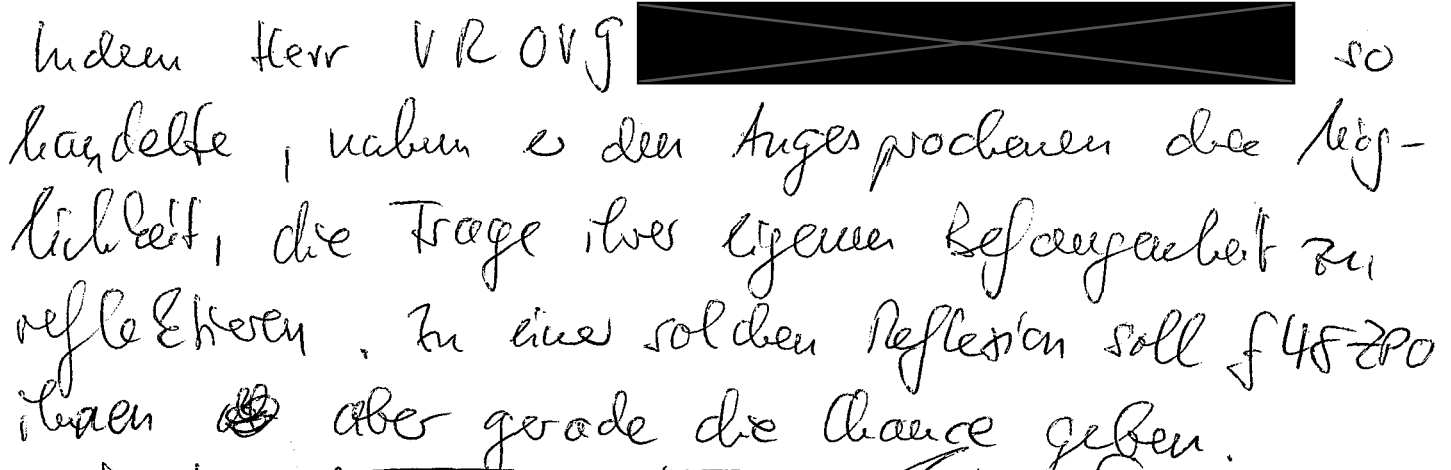 Indem Herr VROVG so
handelte, nahm er den Angesprochenen die Mög-
lichkeit, die Frage ihrer eigenen Befangenheit zu
reflektieren. Zu einer solchen Reflexion soll § 48 ZPO
ihnen aber gerade die Chance geben.